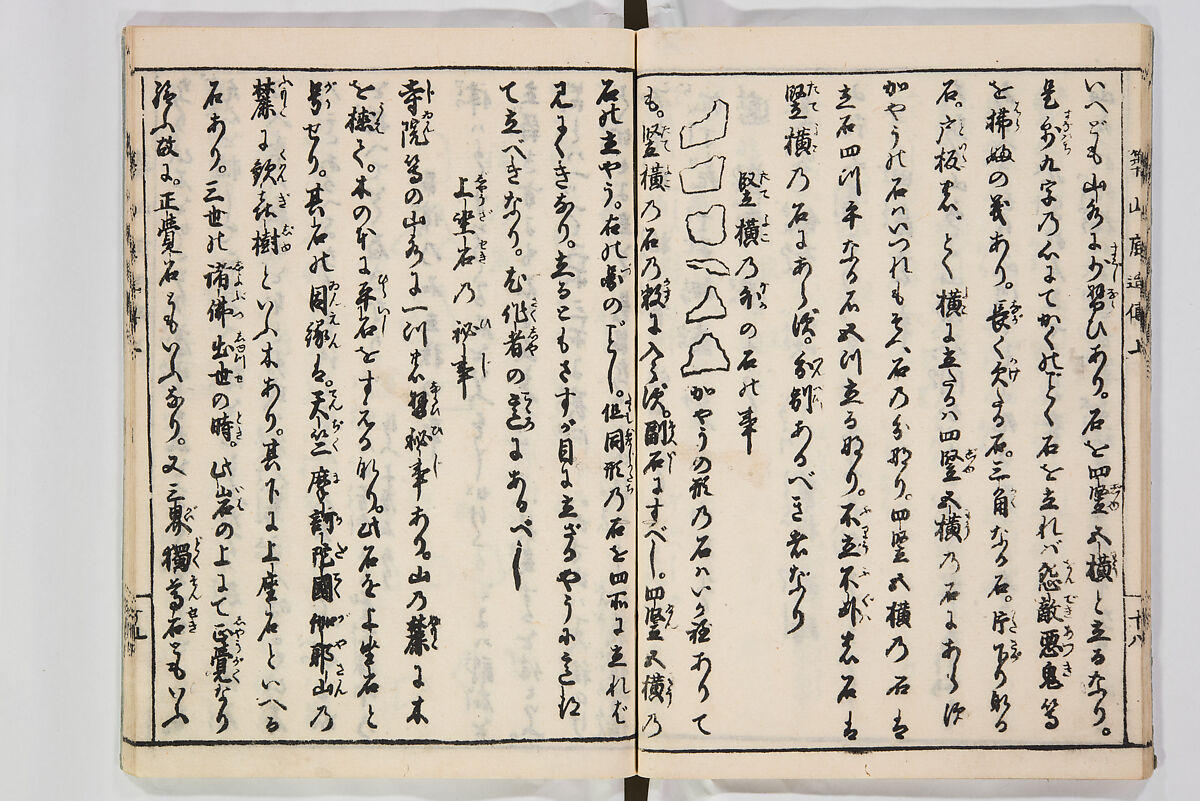 築山庭造傳上 十八
いへども山水に少習ひあり。石を四竪五横と立るなり。
是則九字の心にてかくのごとく石を立れば怨敵悪鬼等
を拂の義あり。長く欠たる石。三角なる石。片下りなる
石。戸板石。とく横に立るは四竪五横の石にあらず
かやうの石はいづれもそへ石の分なり。四竪五横の石は
立石四つ平なる石五つ立るなり。不立不臥の石は
竪横の石にあらず。分別あるべき者なり
竪横の外の石の事
かやうの形の石はいか程ありて
も。竪横の石の数に入らず。離石にすべし。四竪五横の
石の立やう。右の図のごとし。但同形の石を四所に立れば
見にくきなり。立るともさすが目に立ざるやうに意得
て立べきなり。尤作者の意にあるべし
上坐石の秘事
寺院等の山水に一つの習秘事あり。山の麓に木
を植て。木のもとに平石をすゑるなり。此石を上坐石と
号せり。其石の因縁は。天竺摩訶陀國伽耶山の
麓に歓喜樹といふ木あり。其下に上座石といへる
石あり。三世の諸佛出世の時。此岩の上にて正覺なり
給ふ故に。正覺石ともいふなり。又三界獨尊石ともいふ